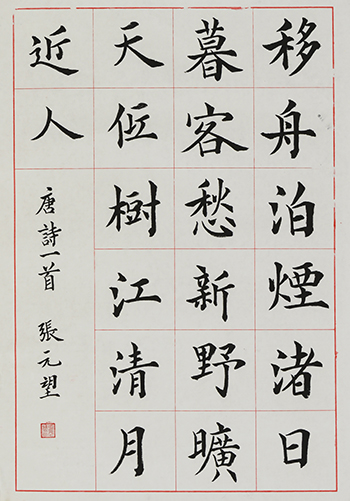 移舟泊煙渚日
暮客愁新野曠
天低樹江清月
近人
唐詩一首 張元望